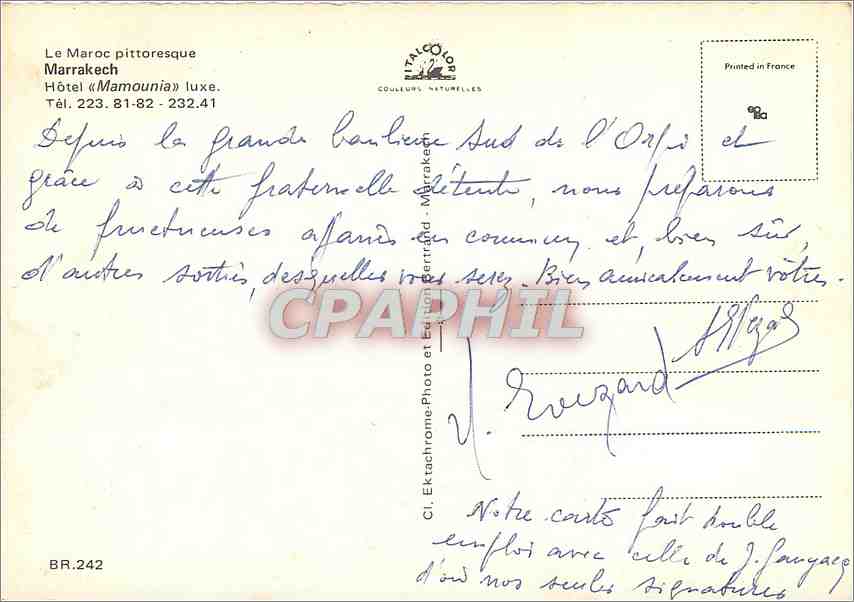 Le Maroc pittoresque
Marrakech
Hôtel «Mamounia» luxe.
Tél. 223. 81-82 - 232.41
ITALCOLOR
COULEURS NATURELLES
Printed in France
Depuis la grande banlieue Sud de l'Orfi et
grâce à cette fraternelle détente, nous préparons
de fructueuses affaires en commun et, bien sûr,
d'autres sorties, desquelles vous serez. Bien amicalement vôtres.
CPAPHIL
Cl. Ektachrome-Photo et Edition Bertrand - Marrakech
Notre carte fait double
emploi avec celle de J.
d'où nos seules signatures
BR.242